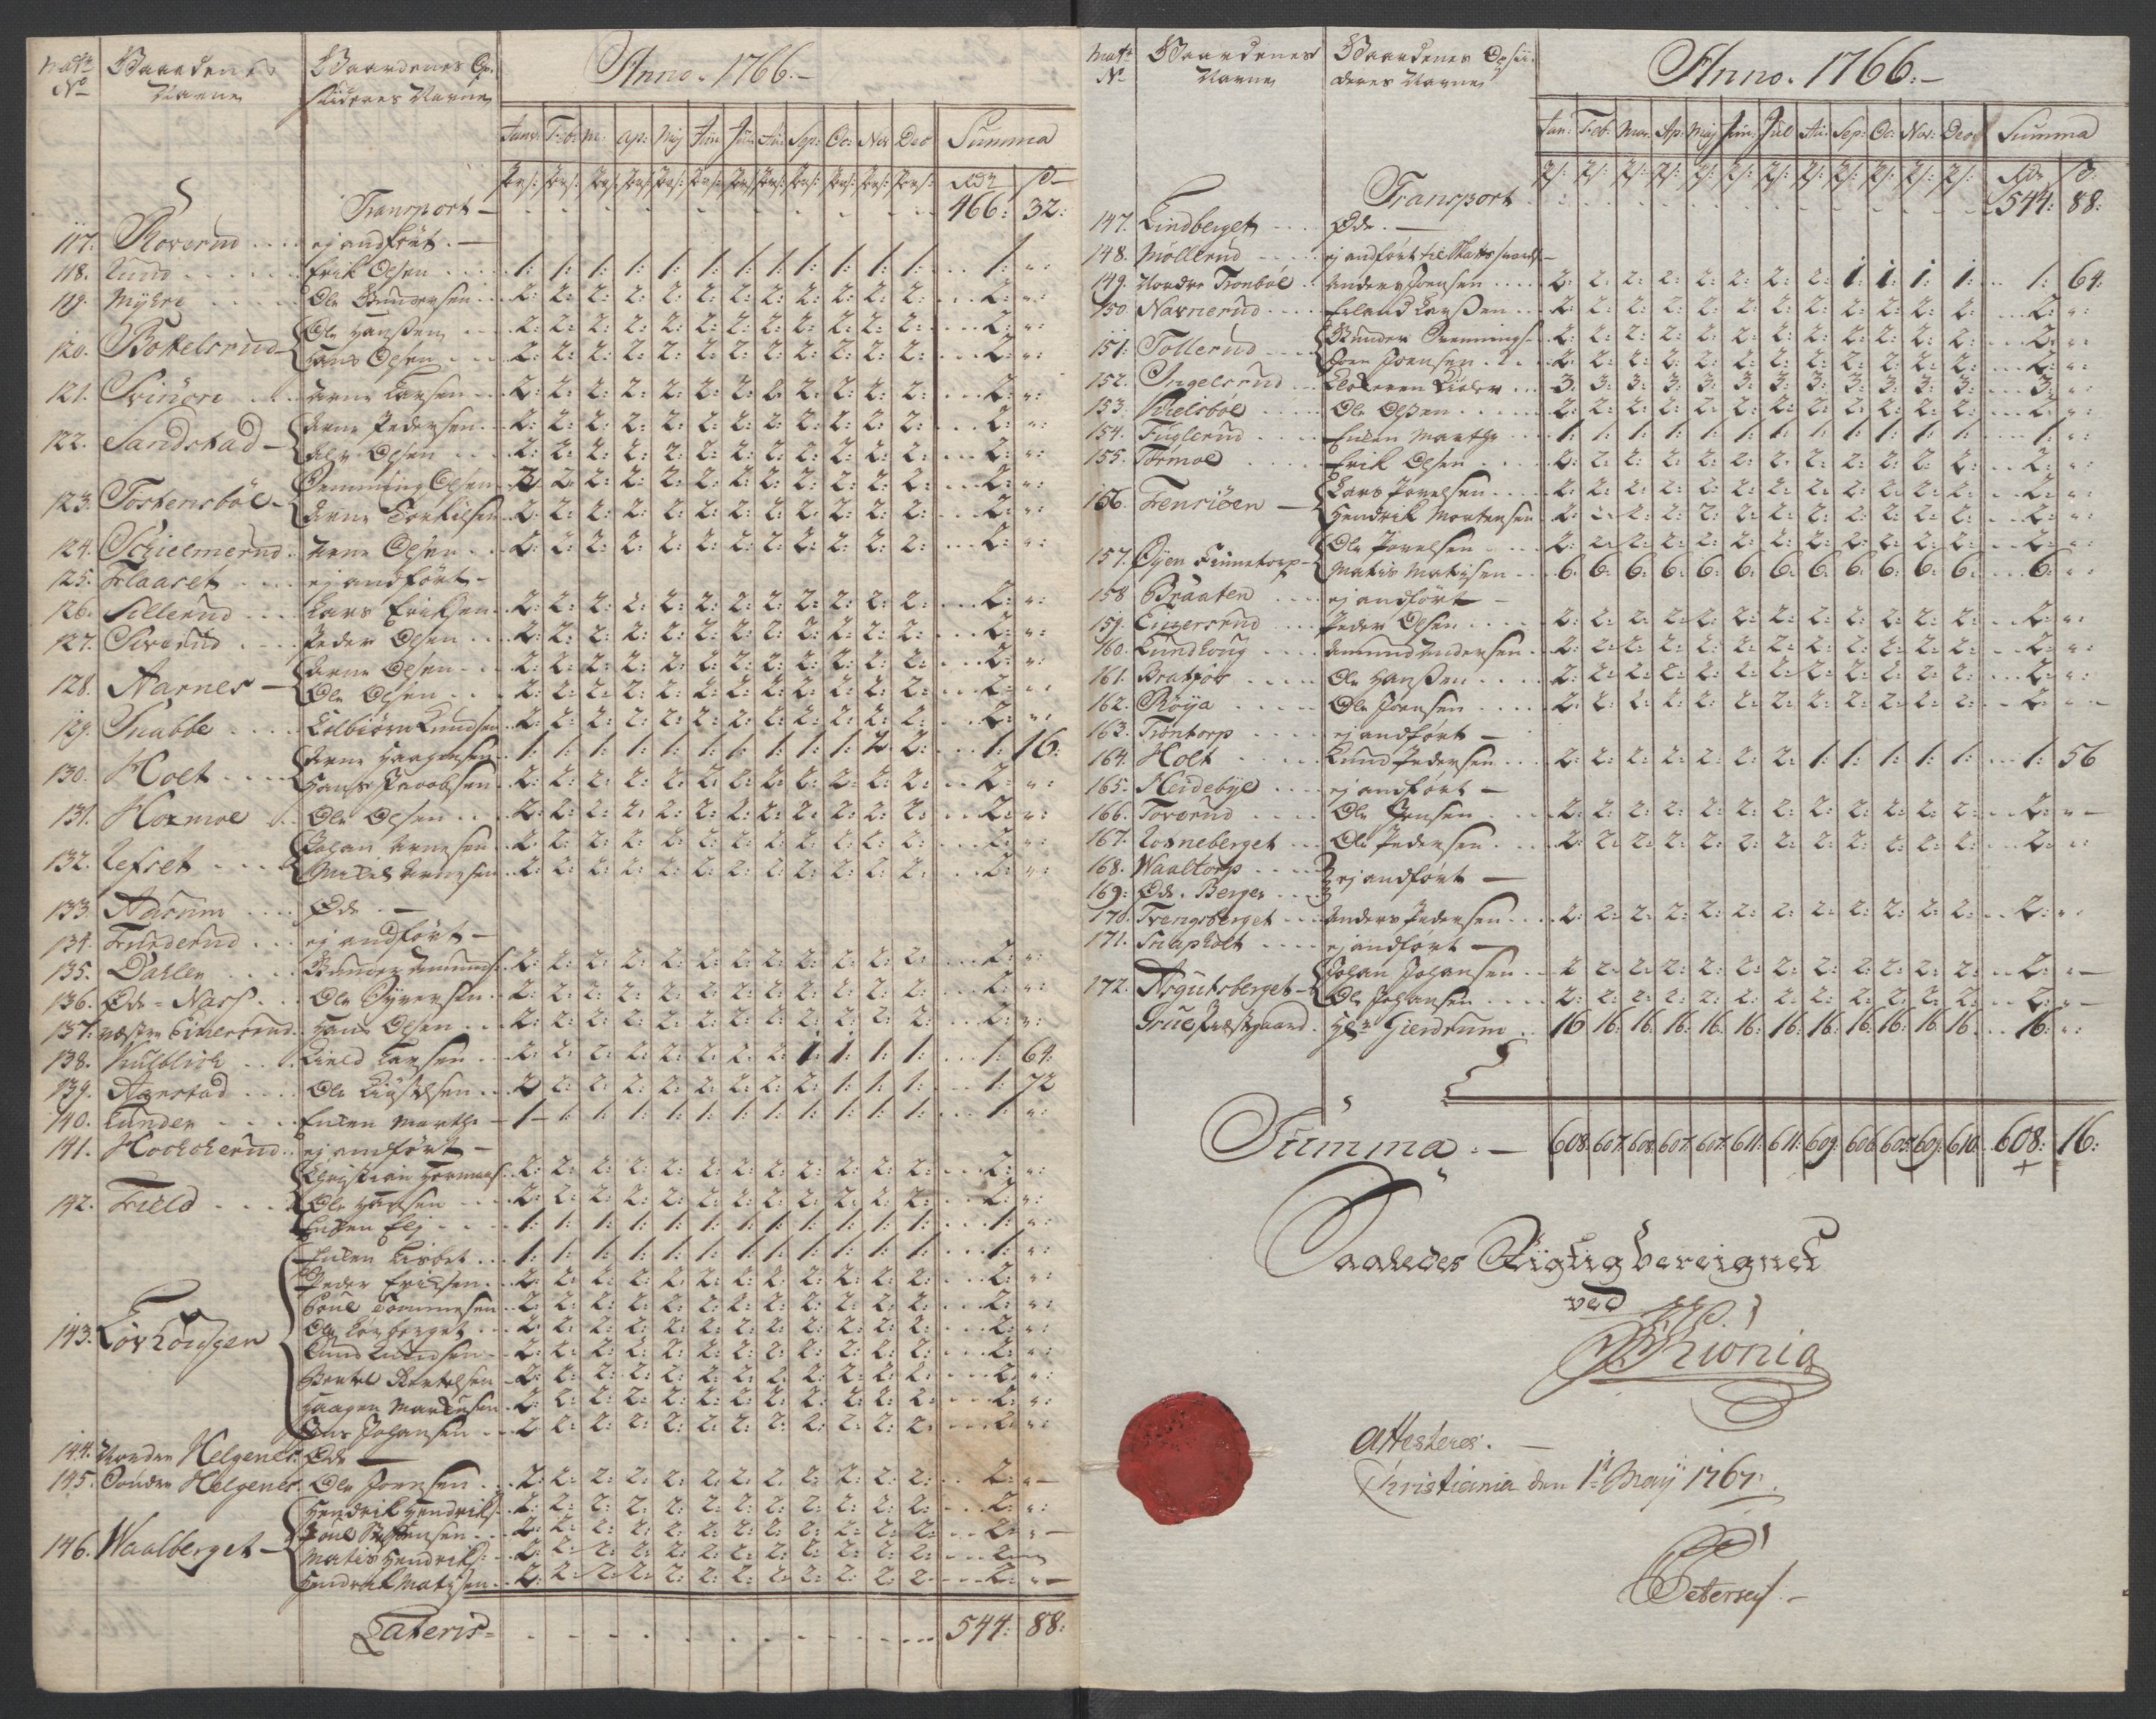 Mat: No Gaardenes Navne Gaardenes Opsiideres Navne Anno. 1766.
Janv: Feb: M: Ap: Mij Jun: Jul: Au: Sep: Oc: Nov Dec Summa
Rdr ß
Transport 466: 32:
117. Roverud ej andført.
118. Lund Erik Olsen 1: 1: 1: 1: 1: 1: 1: 1: 1: 1: 1: 1: 1: ":
119. Myhre Ole Gundersen 2: 2: 2: 2: 2: 2: 2: 2: 2: 2: 2: 2: 2: ":
120. Bokelsrud Ole Hansen 2: 2: 2: 2: 2: 2: 2: 2: 2: 2: 2: 2: 2: ":
Hans Olsen 2: 2: 2: 2: 2: 2: 2: 2: 2: 2: 2: 2: 2: ":
121. Arne Larsen 2: 2: 2: 2: 2: 2: 2: 2: 2: 2: 2: 2: 2: ":
122. Sandstad Arne Pedersen 2: 2: 2: 2: 2: 2: 2: 2: 2: 2: 2: 2: 2: ":
Olsen 2: 2: 2: 2: 2: 2: 2: 2: 2: 2: 2: 2: 2: ":
123. Tostensböl Svenning Olsen 2 2 2: 2: 2: 2: 2: 2: 2: 2: 2: 2: 2: ":
Arne Torkilsen 2: 2: 2: 2: 2: 2: 2: 2: 2: 2: 2: 2: 2: ":
124. Schielmerud Arne Olsen 2: 2: 2: 2: 2: 2: 2: 2: 2: 2: 2: 2: 2: ":
125. Flaaret ej andført
126. Sillerud Lars Eriksen 2: 2: 2: 2: 2: 2: 2: 2: 2: 2: 2: 2: 2: ":
127. Siverud Peder Olsen 2: 2: 2: 2: 2: 2: 2: 2: 2: 2: 2: 2: 2: ":
128. Aarnes Arne Olsen 2: 2: 2: 2: 2: 2: 2: 2: 2: 2: 2: 2: 2: ":
Ole Olsen 2: 2: 2: 2: 2: 2: 2: 2: 2: 2: 2: 2: 2: ":
129. Snabbe Colbiörn Knudsen 2: 2: 2: 2: 2: 2: 2: 2: 2: 2: 2: 2: 2: ":
130. Holt Arne Haagensen 1: 1: 1: 1: 1: 1: 1: 1: 1: 1: 2 2: 1: 16:
Hans Jacobsen 2: 2: 2: 2: 2: 2: 2: 2: 2: 2: 2: 2: 2: ":
131. Hormoe Ole Olsen 2: 2: 2: 2: 2: 2: 2: 2: 2: 2: 2: 2: 2: ":
132. Lefset Johan Arnesen 2: 2: 2: 2: 2: 2: 2: 2: 2: 2: 2: 2: 2: ":
Mikel Arnesen 2: 2: 2: 2: 2: 2: 2: 2: 2: 2: 2: 2: 2: ":
133. Aasum Øde
134. Funderud ej andført
135. Dahlen Gunder Amunds: 2: 2: 2: 2: 2: 2: 2: 2: 2: 2: 2: 2: 2: ":
136. Øde-Næss Ole Syversen 2: 2: 2: 2: 2: 2: 2: 2: 2: 2: 2: 2: 2: ":
137. Hans Olsen 2: 2: 2: 2: 2: 2: 2: 2: 2: 2: 2: 2: 2: ":
138. Kulblich Kield Larsen 2: 2: 2: 2: 2: 2: 2: 2: 1: 1: 1: 1: 1: 64:
139. Agerstad Ole 2: 2: 2: 2: 2: 2: 2: 2: 2: 1: 1: 1: 1: 72
140. Lunden Enken Marthe 1 1: 1: 1: 1: 1: 1: 1: 1: 1: 1: 1: 1: ":
141. Hockckerud ej andført
142. Field Christian Hermans: 2: 2: 2: 2: 2: 2: 2: 2: 2: 2: 2: 2: 2: ":
Ole Hansen 2: 2: 2: 2: 2: 2: 2: 2: 2: 2: 2: 2: 2: ":
Enken Elj 1: 1: 1: 1: 1: 1: 1: 1: 1: 1: 1: 1: 1: ":
Enken Lisbet 1: 1: 1: 1: 1: 1: 1: 1: 1: 1: 1: 1: 1: ":
Peder Eriksen 2: 2: 2: 2: 2: 2: 2: 2: 2: 2: 2: 2: 2: ":
Poul Tommesen 2: 2: 2: 2: 2: 2: 2: 2: 2: 2: 2: 2: 2: ":
143. Löv Ole Löv berget 2: 2: 2: 2: 2: 2: 2: 2: 2: 2: 2: 2: 2: ":
Knud Knudsen 2: 2: 2: 2: 2: 2: 2: 2: 2: 2: 2: 2: 2: ":
Bertel Bertelsen 2: 2: 2: 2: 2: 2: 2: 2: 2: 2: 2: 2: 2: ":
Haagen Markusen 2: 2: 2: 2: 2: 2: 2: 2: 2: 2: 2: 2: 2: ":
Johansen 2: 2: 2: 2: 2: 2: 2: 2: 2: 2: 2: 2: 2: ":
144. Nordre Helgenes Øde
145. Søndre Helgenes Ole Joensen 2: 2: 2: 2: 2: 2: 2: 2: 2: 2: 2: 2: 2: "
146. Waalberget Hendrik Hendriks: 2: 2: 2: 2: 2: 2: 2: 2: 2: 2: 2: 2: 2: ":
Poul Steffensen 2: 2: 2: 2: 2: 2: 2: 2: 2: 2: 2: 2: 2: "
Matis Hendriks: 2: 2: 2: 2: 2: 2: 2: 2: 2: 2: 2: 2: 2
Hendrik Matisen 2: 2: 2: 2: 2: 2: 2: 2: 2: 2: 2: 2: 2: "
Lateris 544: 88:
Mat: No Gaardenes Navne Gaardenes Opsiideres Navne Anno. 1766:
Jan: Feb: Mar: Ap: Maj Jun: Jul Au: Sep: Oc: Nov: Dec Summa
Rdr ß:
Transport 544: 88:
147. Lindberget Øde.
148. Möllerud ej andført til Skatts
149. Nordre Tronböl Anders Joensen 2: 2: 2: 2: 2: 2: 2: 2: 1: 1: 1: 1: 1: 64:
150. Navnerud Erland Larssen 2: 2: 2: 2: 2: 2: 2: 2: 2: 2: 2: 2: 2: ":
151: Tollerud Gunder Svennings: 2: 2: 2: 2: 2: 2: 2: 2: 2: 2: 2: 2: 2: ":
Joen Joensen 2: 2: 2: 2: 2: 2: 2: 2: 2: 2: 2: 2: 2: ":
152. Ingelsrud Klokeren 3: 3: 3: 3: 3: 3: 3: 3: 3: 3: 3: 3: 3: ":
153. Skielsböl Ole Olssen 2: 2: 2: 2: 2: 2: 2: 2: 2: 2: 2: 2: 2: ":
154. Fuglerud Enken Marthe 1: 1: 1: 1: 1: 1: 1: 1: 1: 1: 1: 1: 1: ":
155. Tormoe Erik Olsen 2: 2: 2: 2: 2: 2: 2: 2: 2: 2: 2: 2: 2: ":
156. Fenriöen Lars Povelsen 2: 2: 2: 2: 2: 2: 2: 2: 2: 2: 2: 2: 2: ":
Hendrik Mortensen 2: 2: 2: 2: 2: 2: 2: 2: 2: 2: 2: 2: 2: ":
157. Öyen Finnetorp Ole Povelsen 2: 2: 2: 2: 2: 2: 2: 2: 2: 2: 2: 2: 2: ":
Matis Matisen 6: 6: 6: 6: 6: 6: 6: 6: 6: 6: 6: 6: 6: ":
158 Braaten ej andført
159. Eugersrud Peder Olsen 2: 2: 2: 2: 2: 2: 2: 2: 2: 2: 2: 2: 2: ":
160. Lundhoug Amund Andersen 2: 2: 2: 2: 2: 2: 2: 2: 2: 2: 2: 2: 2: ":
161. Bratfos Ole Hanssen 2: 2: 2: 2: 2: 2: 2: 2: 2: 2: 2: 2: 2: ":
162. Röya Ole Joensen 2: 2: 2: 2: 2: 2: 2: 2: 2: 2: 2: 2: 2: "
163. Tröntorp ej andført
164. Holt Knud Pedersen 2: 2: 2: 2: 2: 2: 2: 1: 1: 1: 1: 1: 1: 56
165. Heidebye ej andført
166. Toverud Ole Jensen 2: 2: 2: 2: 2: 2: 2: 2: 2: 2: 2: 2: 2: "
167. Rosneberget Ole Pedersen 2: 2: 2: 2: 2: 2: 2: 2: 2: 2: 2: 2: 2: ":
168. Waaltorp ej andført
169: Øde. Berger
170. Trengsberget Anders Pedersen 2: 2: 2: 2: 2: 2: 2: 2: 2: 2: 2: 2: 2: ":
171. Snapholt ej andført
172. Asgutsberget Johan Johansen 2 2: 2: 2: 2: 2: 2: 2: 2: 2: 2: 2: 2: "
Ole Johansen 2: 2: 2: 2: 2: 2: 2: 2: 2: 2: 2: 2: 2: "
Grue Præstegaard Hr Gierdrum 16 16: 16: 16: 16: 16: 16: 16: 16: 16: 16: 16: 16: ":
Summa 608: 607: 608: 607: 607: 611: 611: 609: 606: 605: 609: 610: 608: 16:
Saaledes Rigtig bereignet
ved
attesteres.
Christiania den 1te Maij 1767.
Petersen